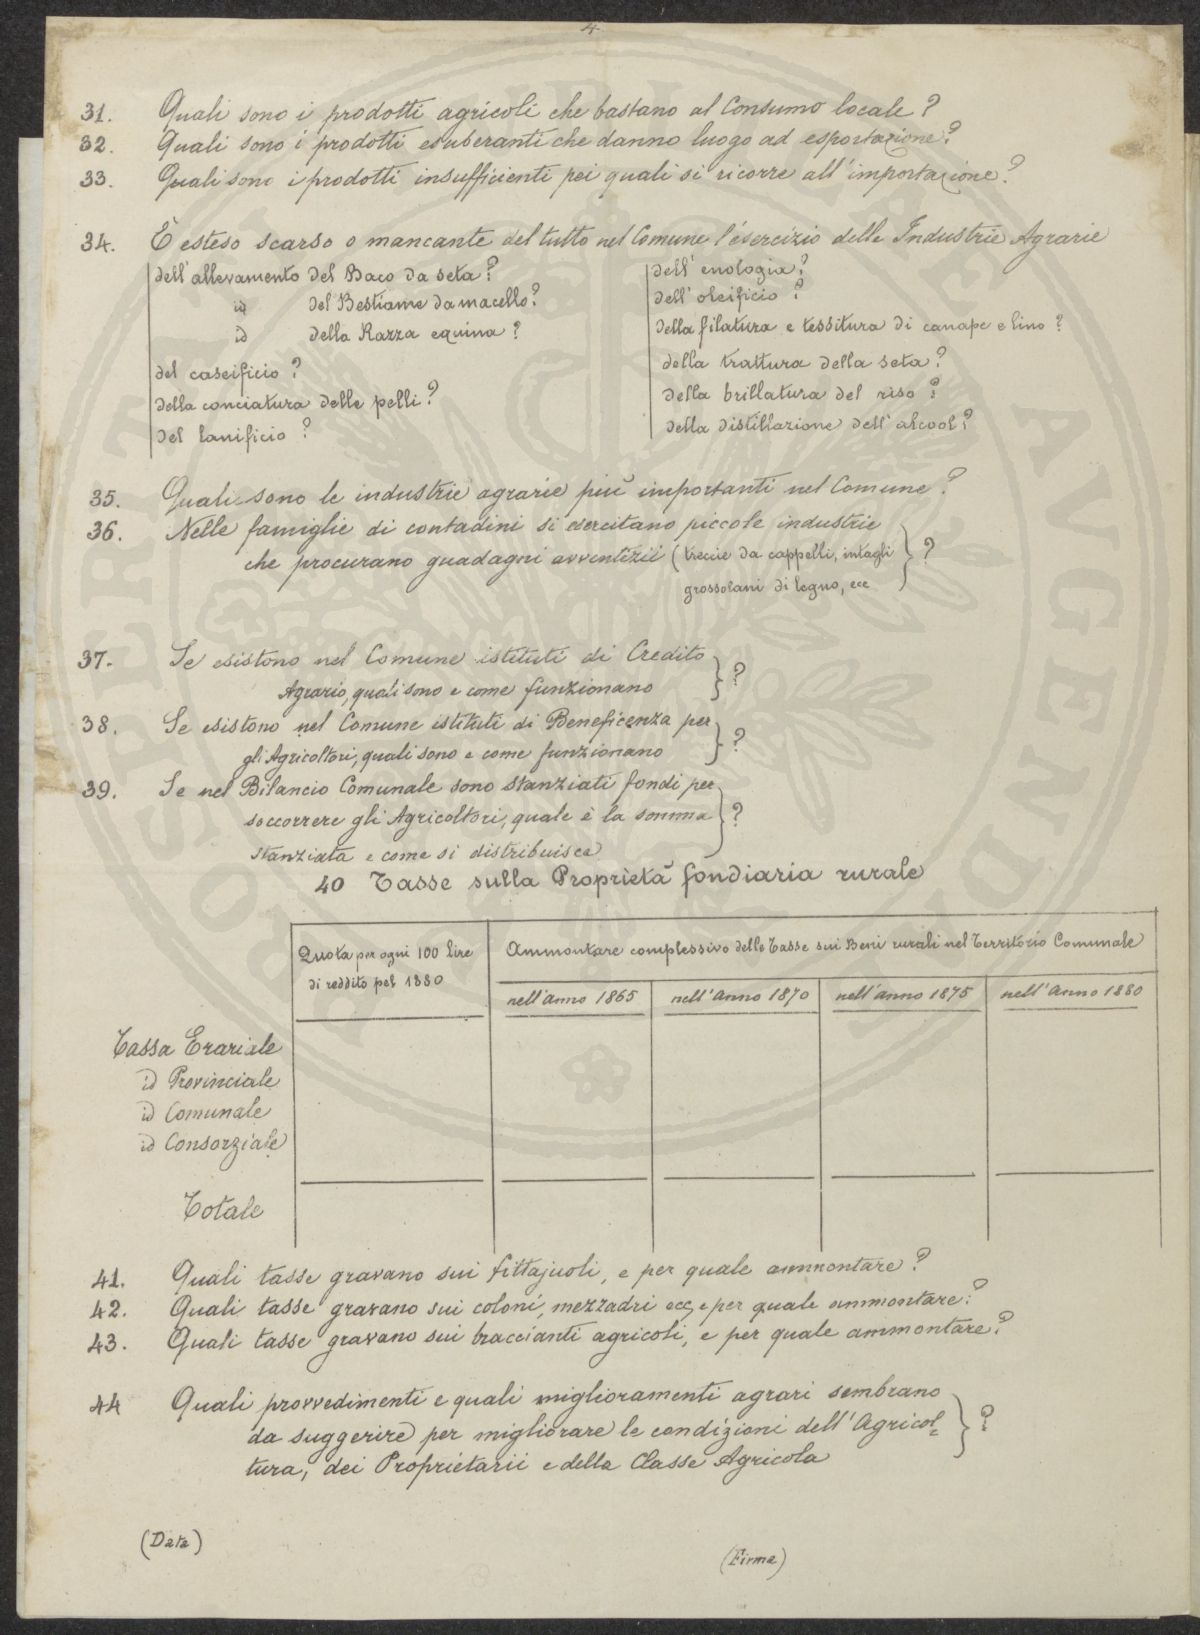 4
31. Quali sono i prodotti agricoli che bastano al Consumo locale?
32. Quali sono i prodotti esuberanti che danno luogo ad esportazione?
33. Quali sono i prodotti insufficienti pei quali si ricorre all'importazione?
34. È esteso scarso o mancante del tutto nel Comune l'esercizio delle Industrie Agrarie
dell'allevamento del Baco da seta?
id del Bestiame da macello?
id della Razza equina?
del caseificio?
della conciatura delle pelli?
del lanificio?
dell'enologia?
dell'oleificio?
della filatura e tessitura di canape e lino?
della trattura della seta?
della brillatura del riso?
della distillazione dell'alcool?
35. Quali sono le industrie agrarie più importanti nel Comune?
36. Nelle famiglie di contadini si esercitano piccole industrie
che procurano guadagni avventizii (treccie da cappelli, intagli
grossolani di legno, ecc ) ?
37. Se esistono nel Comune istituti di Credito
Agrario, quali sono e come funzionano ?
38. Se esistono nel Comune istituti di Beneficenza per
gli Agricoltori, quali sono e come funzionano ?
39. Se nel Bilancio Comunale sono stanziati fondi per
soccorrere gli Agricoltori, quale è la somma ?
stanziata e come si distribuisce
40 Tasse sulla Proprietà fondiaria rurale
Quota per ogni 100 Lire
di reddito pel 1880
Ammontare complessivo delle Tasse sui Beni rurali nel Territorio Comunale
nell'anno 1865 nell'Anno 1870 nell'anno 1875 nell'Anno 1880
Tassa Erariale
id Provinciale
id Comunale
id Consorziale
Totale
41. Quali tasse gravano sui fittajuoli, e per quale ammontare?
42. Quali tasse gravano sui coloni, mezzadri ecc, e per quale ammontare?
43. Quali tasse gravano sui braccianti agricoli, e per quale ammontare?
44 Quali provvedimenti e quali miglioramenti agrari sembrano
da suggerire per migliorare le condizioni dell'Agricol=
tura, dei Proprietarii e della Classe Agricola ?
(Data)
(Firma)